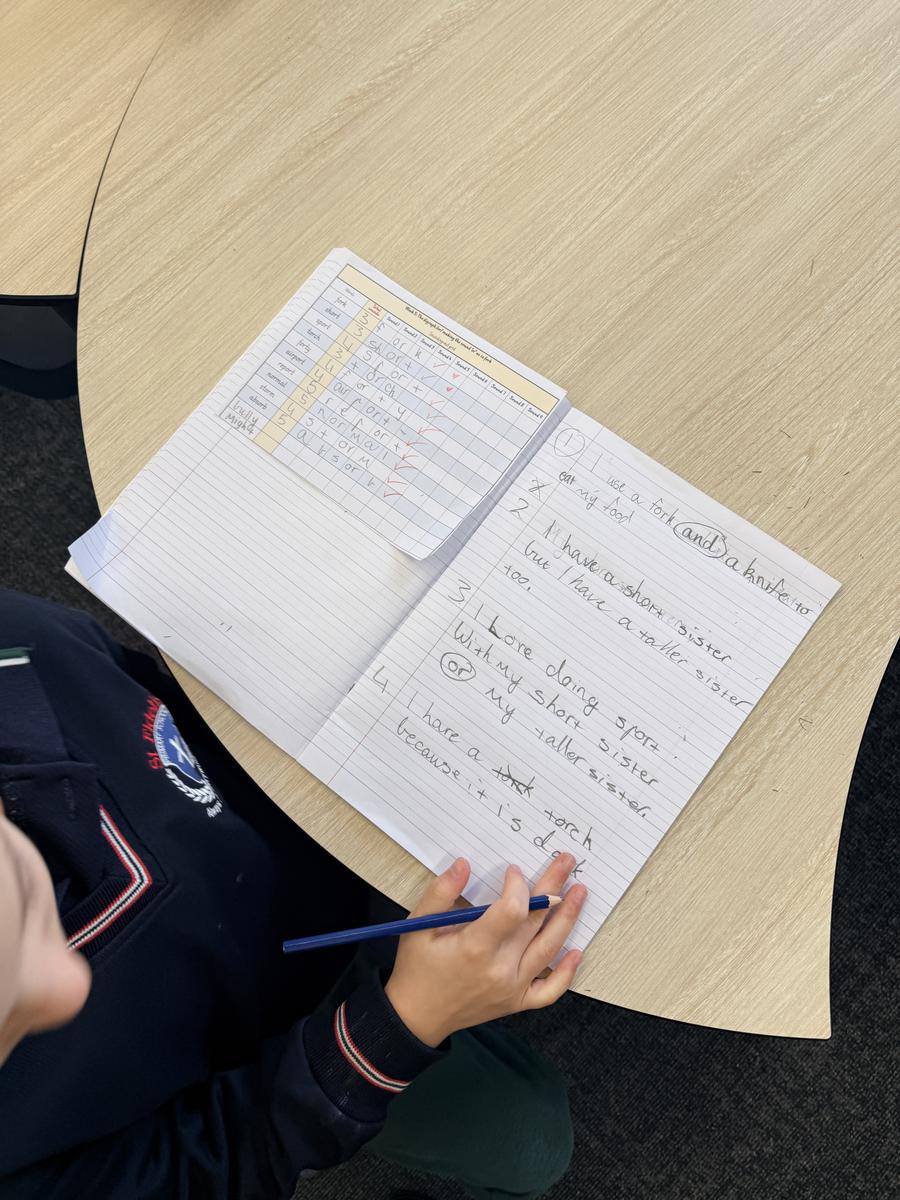 Week 5: The digraph /or/ making the sound 'or' as in fork
Sound 1 Sound 2 Sound 3 Sound 4 Sound 5 Sound 6 Sound 7 Sound 8
fork 3 f or k
short 3 sh or t
sport 4 s p or t
torch 3 t or ch
forty 4 f or t y
airport 4 air p or t
report 5 r e p or t
normal 5 n or m a l
storm 4 s t or m
absorb 5 a b s or b
bully
Might
1 I use a fork and a knife to
eat my food
2 I have a short sister
but I have a taller sister
too.
3 I Love doing sport
With my short sister
or my taller sister.
4. I have a torch
because it is dark